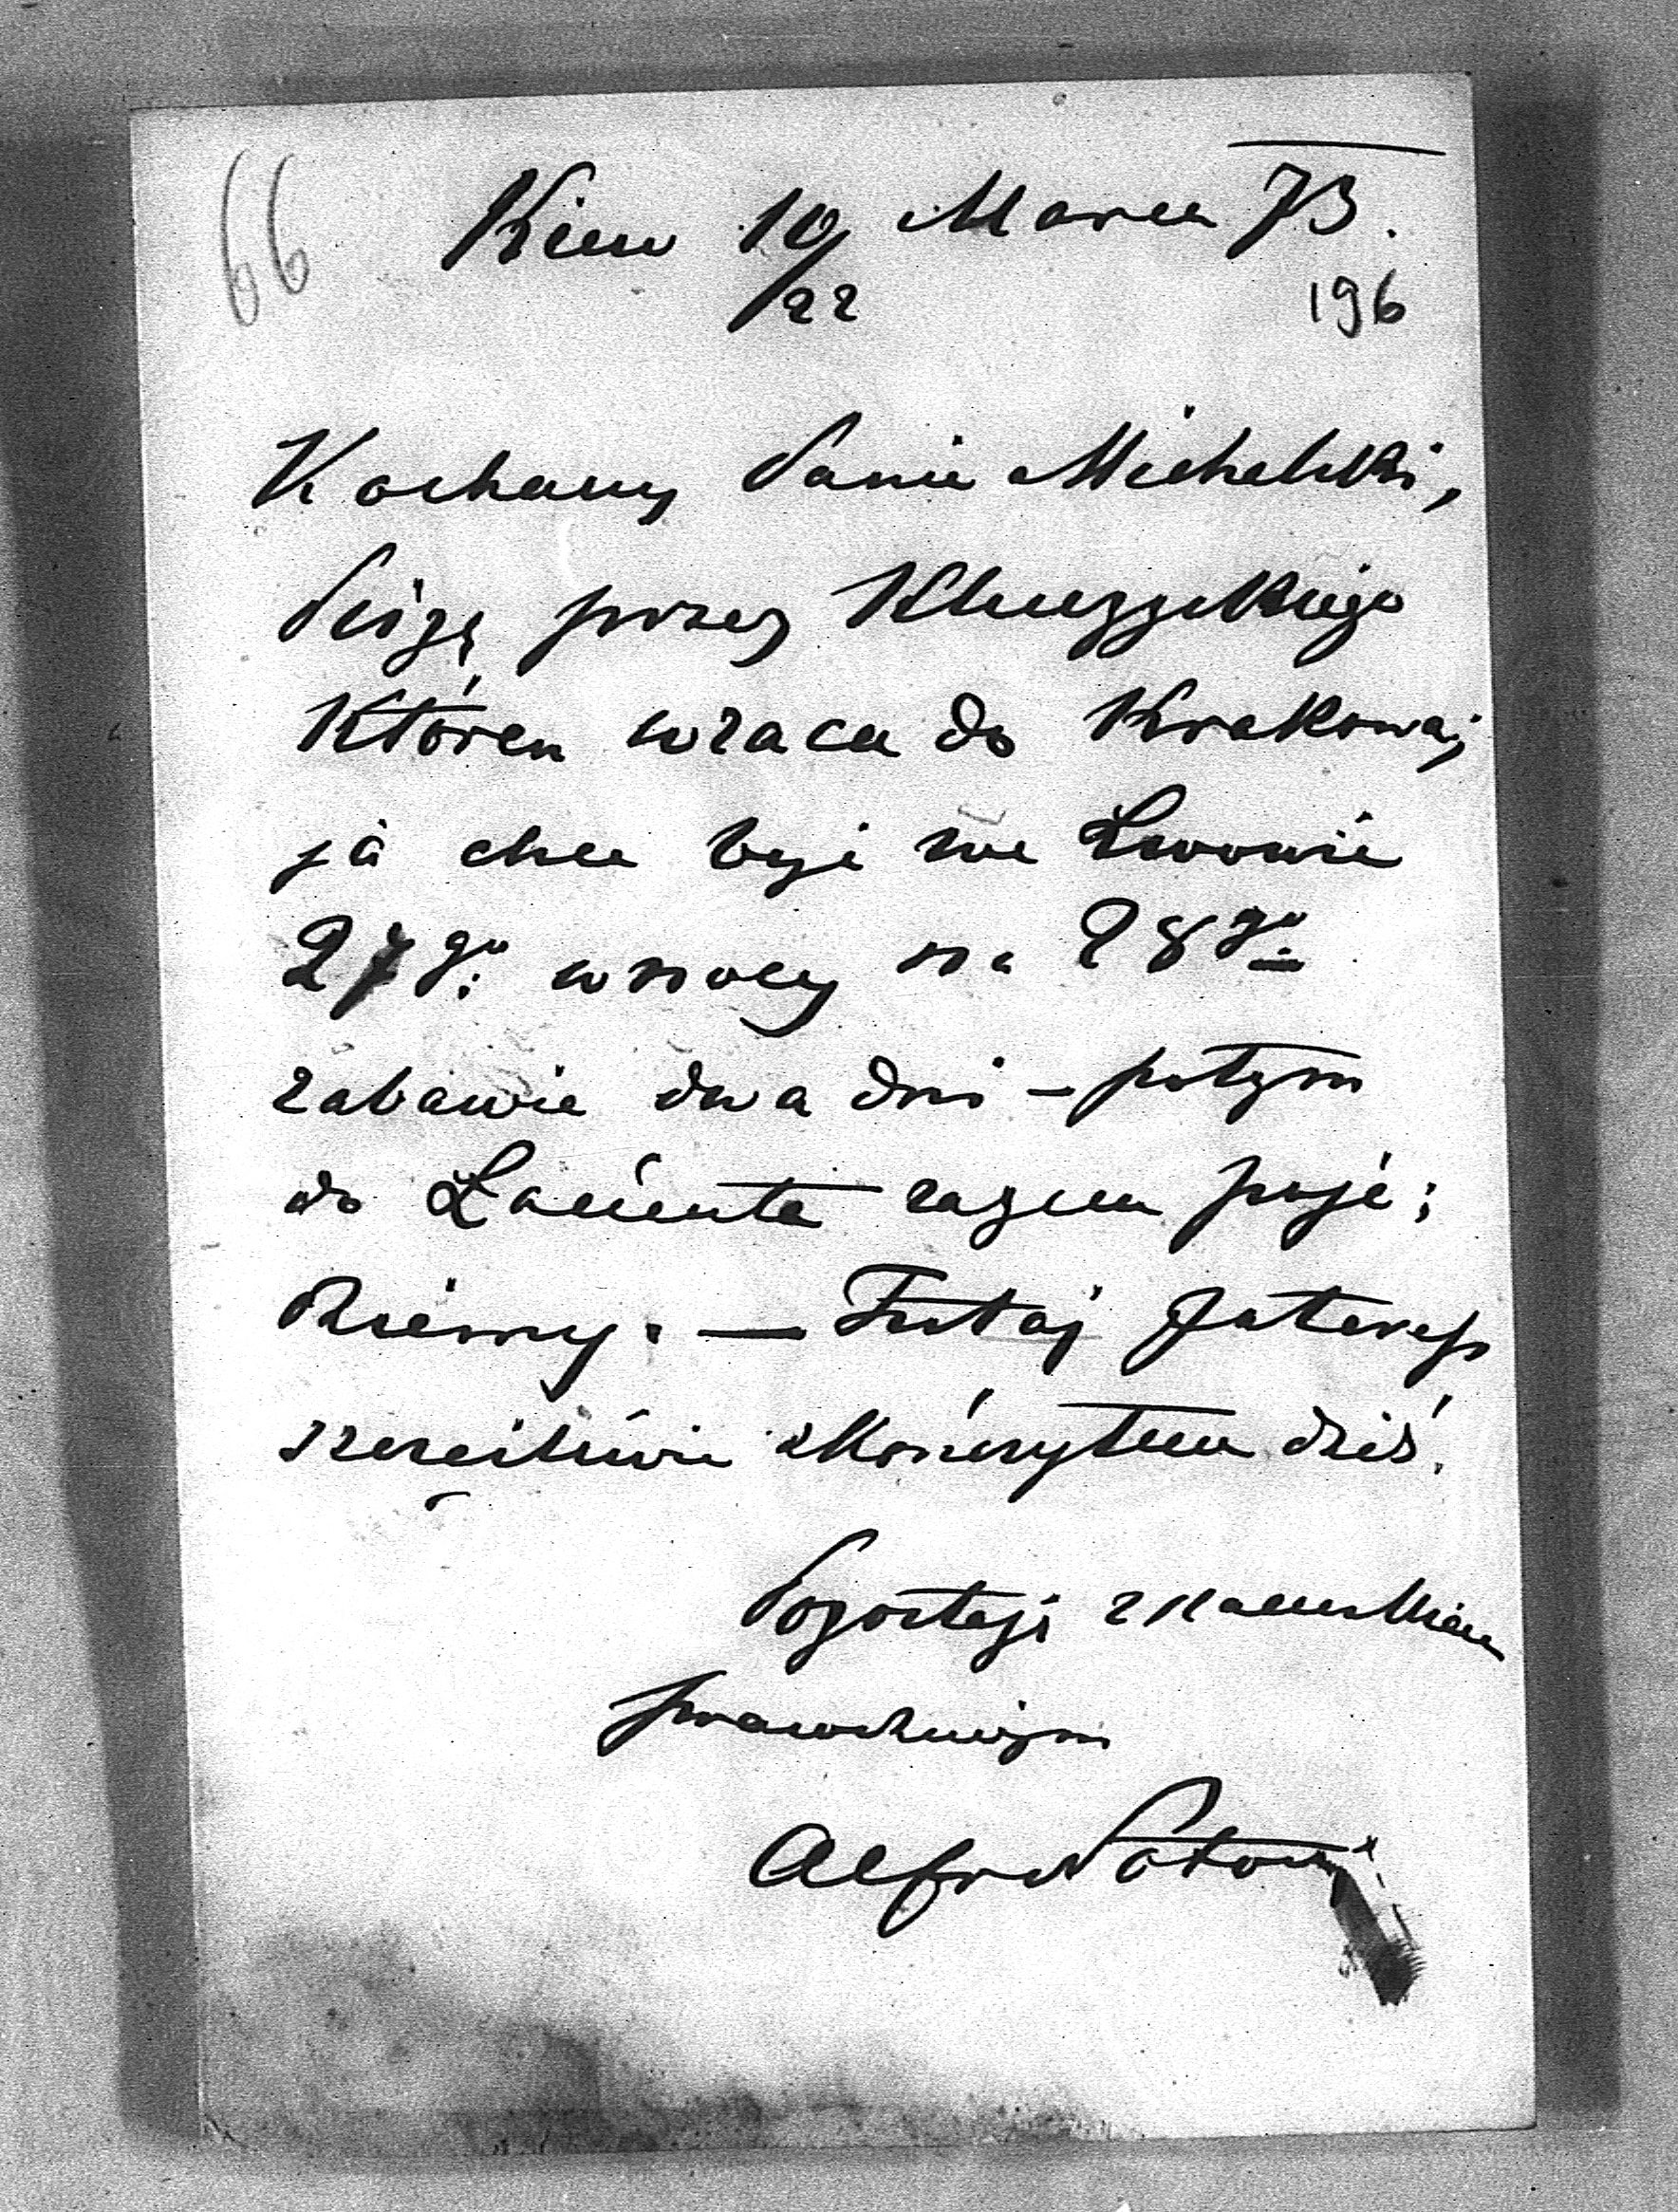 66
Kiew 10/22 Marca 73.
196
Kochany Panie Michalski,
Piszę przez Kluczyckiego
któren wraca do Krakowa;
ja chce być we Lwowie
27go w nocy na 28go
zabawie dwa dni – potym
do Łańcuta razem poje:
dziemy. — Tutaj Interess
szczeiśliwie skończyłem dziś.
Pozostaję z szacunkiem
prawdziwym
Alfred Potocki